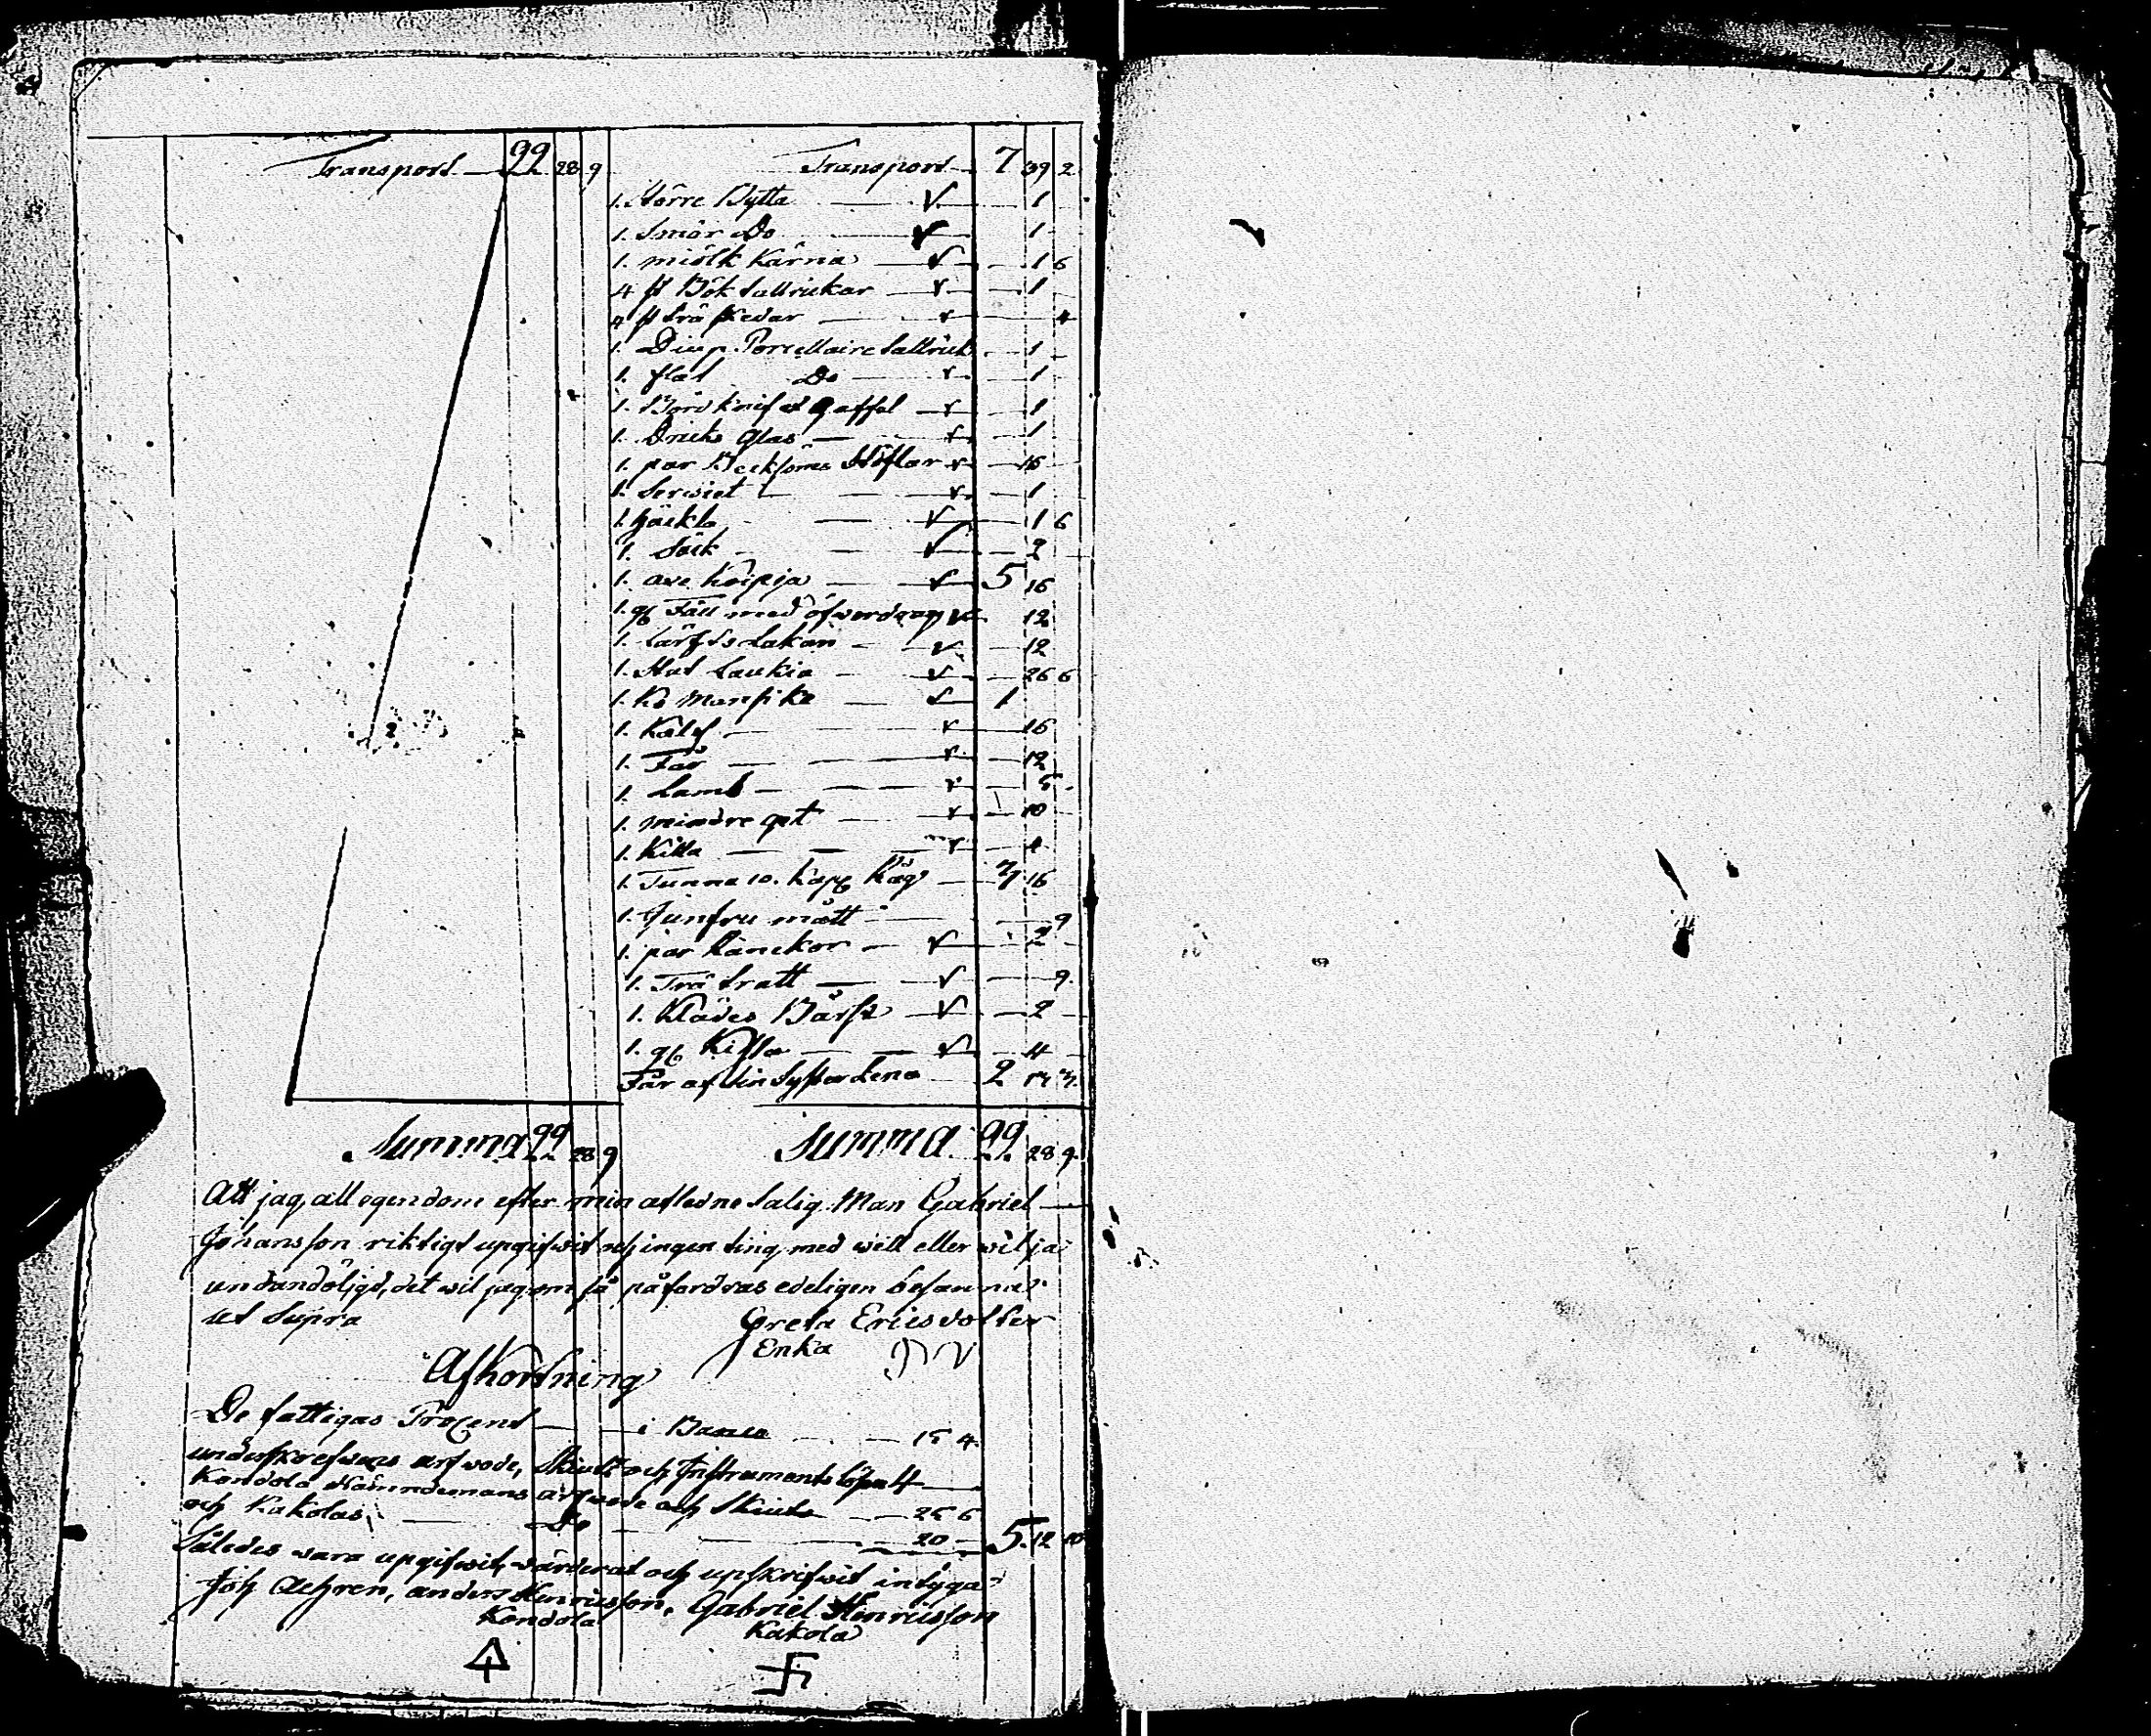 Transport 99 28 9
Transport 7 39 2
1. Större Bytta 1
1. Smör Do 1
1. miölk Kärna 1 6
4 st Bök tallrickar 1
4 st trä skedar 4
1. Diup Porcellaine tallrick 1
1. flat Do 1
1. Bord knif et gaffel 1
1. Dricks glas 1
1. par Becksöms Stöflar 16
1. Serwiet 1
1. häckla 1 6
1. Säck 2
1. axe 5 16
1. gl Fäll med öfwerdrag 12
1. lärfts Lakan 12
1. Laukia 26 6
1. Ko Mansike 1
1. Kalf 16
1. Får 12
1. Lamb 5
1. mindre get 10
1. Killa 4
1. Tunna 10. Kapp Råg 7 16
1. Junfru mått 9
1. par 2
1. Trä tratt 9
1. Klädes Bårst 2
1. gl Kista 4
Får af sin Syster Lena 2
Summa 99 28 9
Summa 99 28 9
Att jag all egendom efter min afledne Salig Man Gabriel
Johansson riktigt upgifwit och ingen ting med wett eller wilja
undandöljgt, det wil jag om så påfordras edeligen besanna
ut Supra Greta Ericsdotter
Enka
Afkortning
De fattigas Procent i Banco 15 4
underskrefwens arfwode, Skiuts och Instruments lösen 4
Kondola Nämndemans arfwode och Skiuts 25 6
och Kakolas Do 20 5 12 10
Således wara upgifwit, wärderat och upskrifwit intyga
Joh Aehren, anders Henricsson, Gabriel Hinricsson
Kondola Kakola